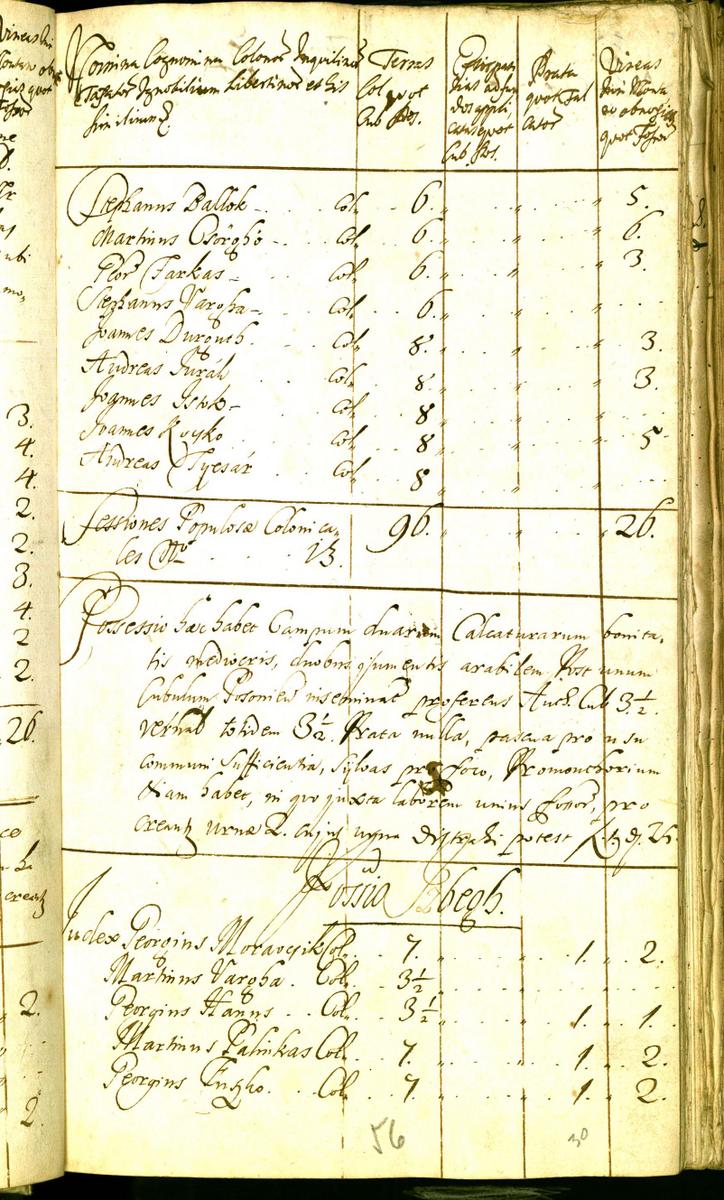 Nomina Cognomina Colonor Inquilinor
Taxator Ignobilium Libertinor et his
similium
Terras
Col. quot
Cub Pos.
dias ad fun
dos appli
catas quot
Cub. Pos.
Prata
quot Fal
cator
Vineas
quot Fossor
Stephanus Ballok Col. 6. 5.
Martinus Csörghö Col. 6. 6.
Petrus Farkas Col. 6. 3.
Stephanus Vargha Col. 6.
Joannes Durguth Col. 8. 3.
Andreas Juráh Col. 8. 3.
Joannes Istok Col. 8
Joannes Kocsko Col. 8 5
Andreas Tyesár Col. 8
Sessiones Populosæ Colonica 96. 26.
les No 13.
Possessio hæc habet Campum duarum Calcaturarum bonita,
tis mediocris, duobus jumentis arabilem Post unum
Cubulum Posonien inseminat proferens Auth. Cub 3½.
vernal totidem 3½. Prata nulla, pascua pro usu
communi sufficientia, sylvas pro foco, Promonthorium
etiam habet, in quo juxta laborem unius fossor, pro
creantz urnæ 2. cujus urna distrahi potest
Possio Ibegh.
Judex Georgius Moravcsik Col. 7. 1. 2.
Martinus Vargha. Col. 3½
Georgius Hanns Col. 3½ 1. 1.
Martinus Palinkas Col. 7. 1. 2.
Georgius Fuzko. Col. 7. 1. 2.
56 30
3.
4.
4
2.
2.
3.
4.
2
2.
26.
2.
2.